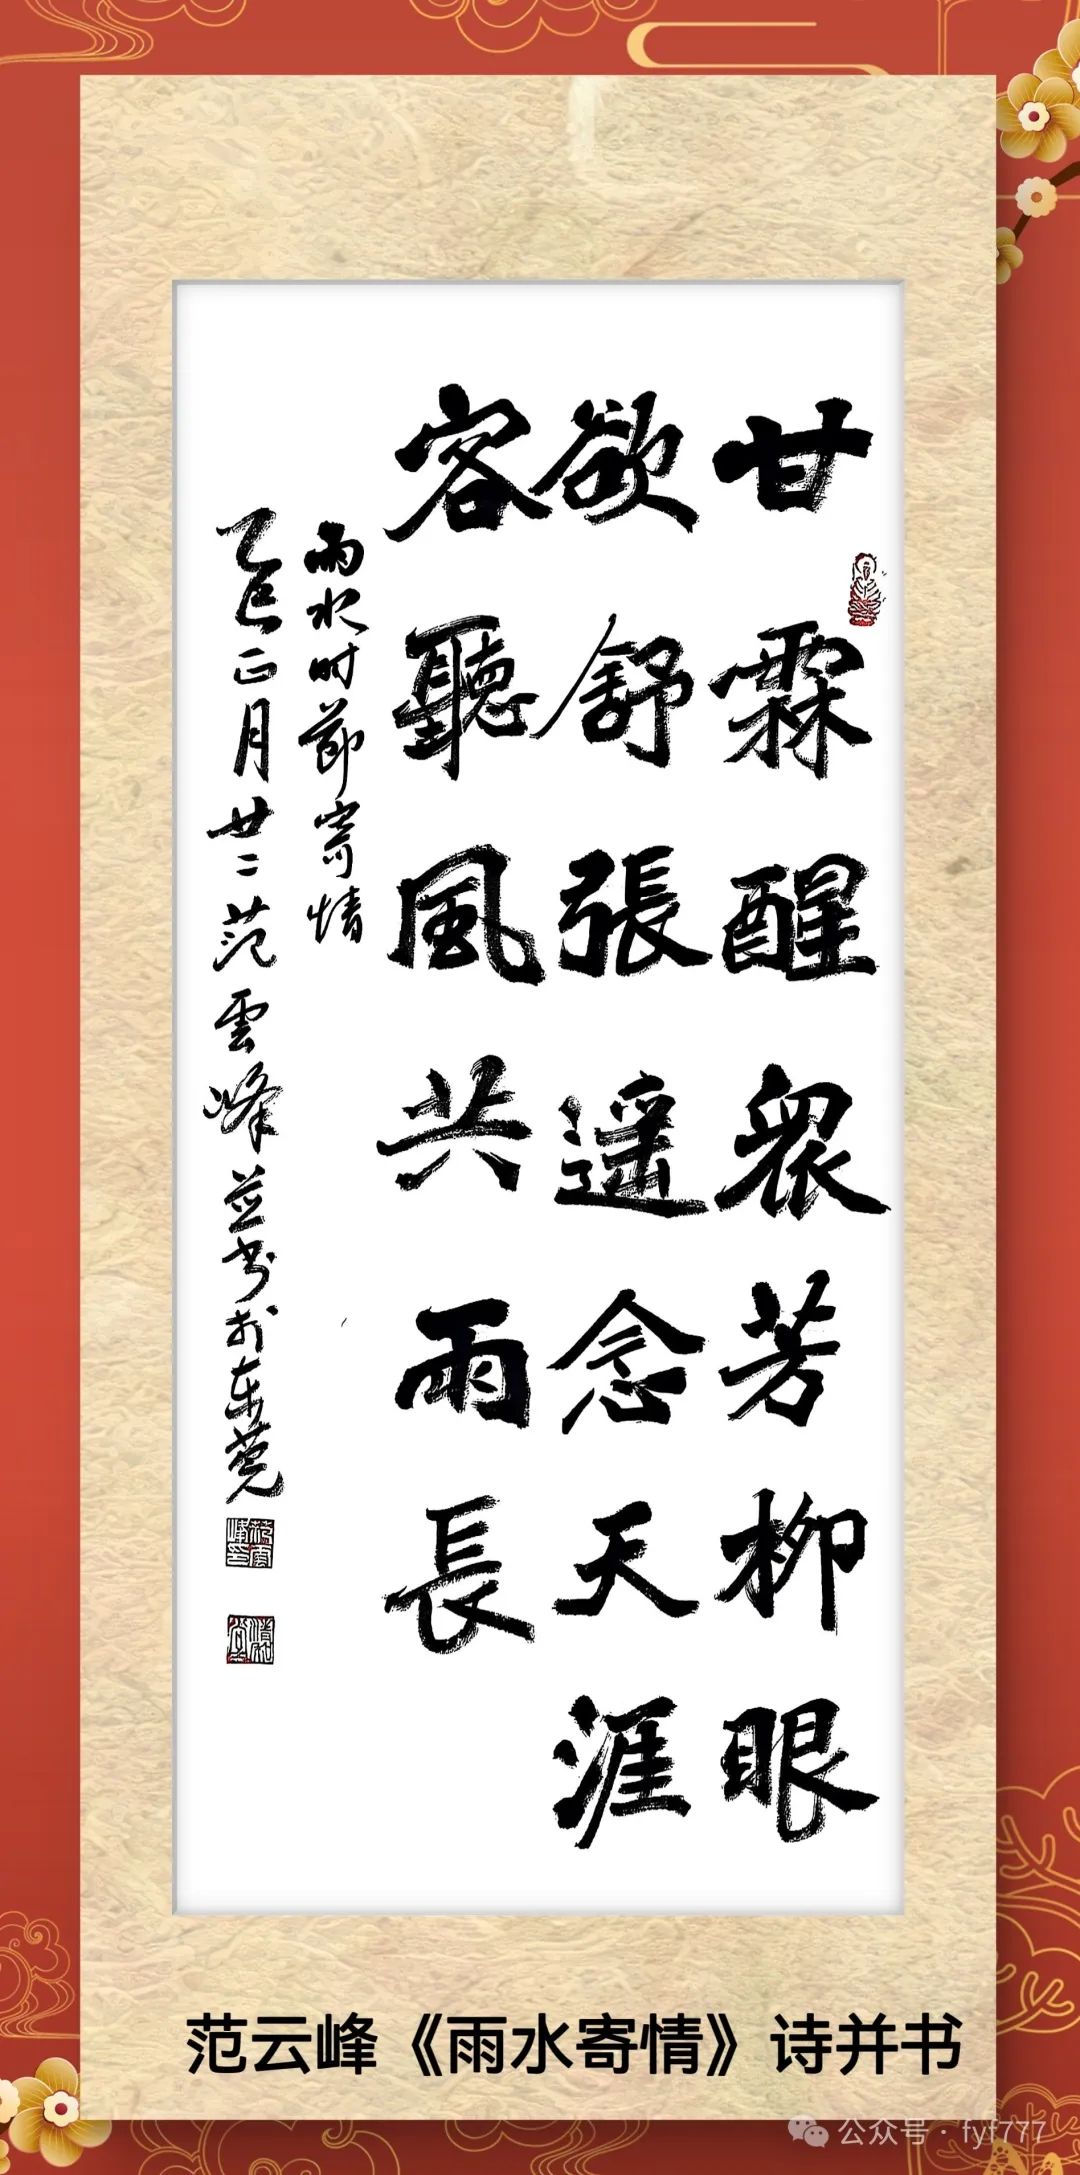 甘霖醒眾芳柳眼
欲舒張遥念天涯
客聽風共雨長
雨水时節寄情
乙巳正月廿二范雲峰并书於东莞
范云峰《雨水寄情》诗并书
公众号·fyf777